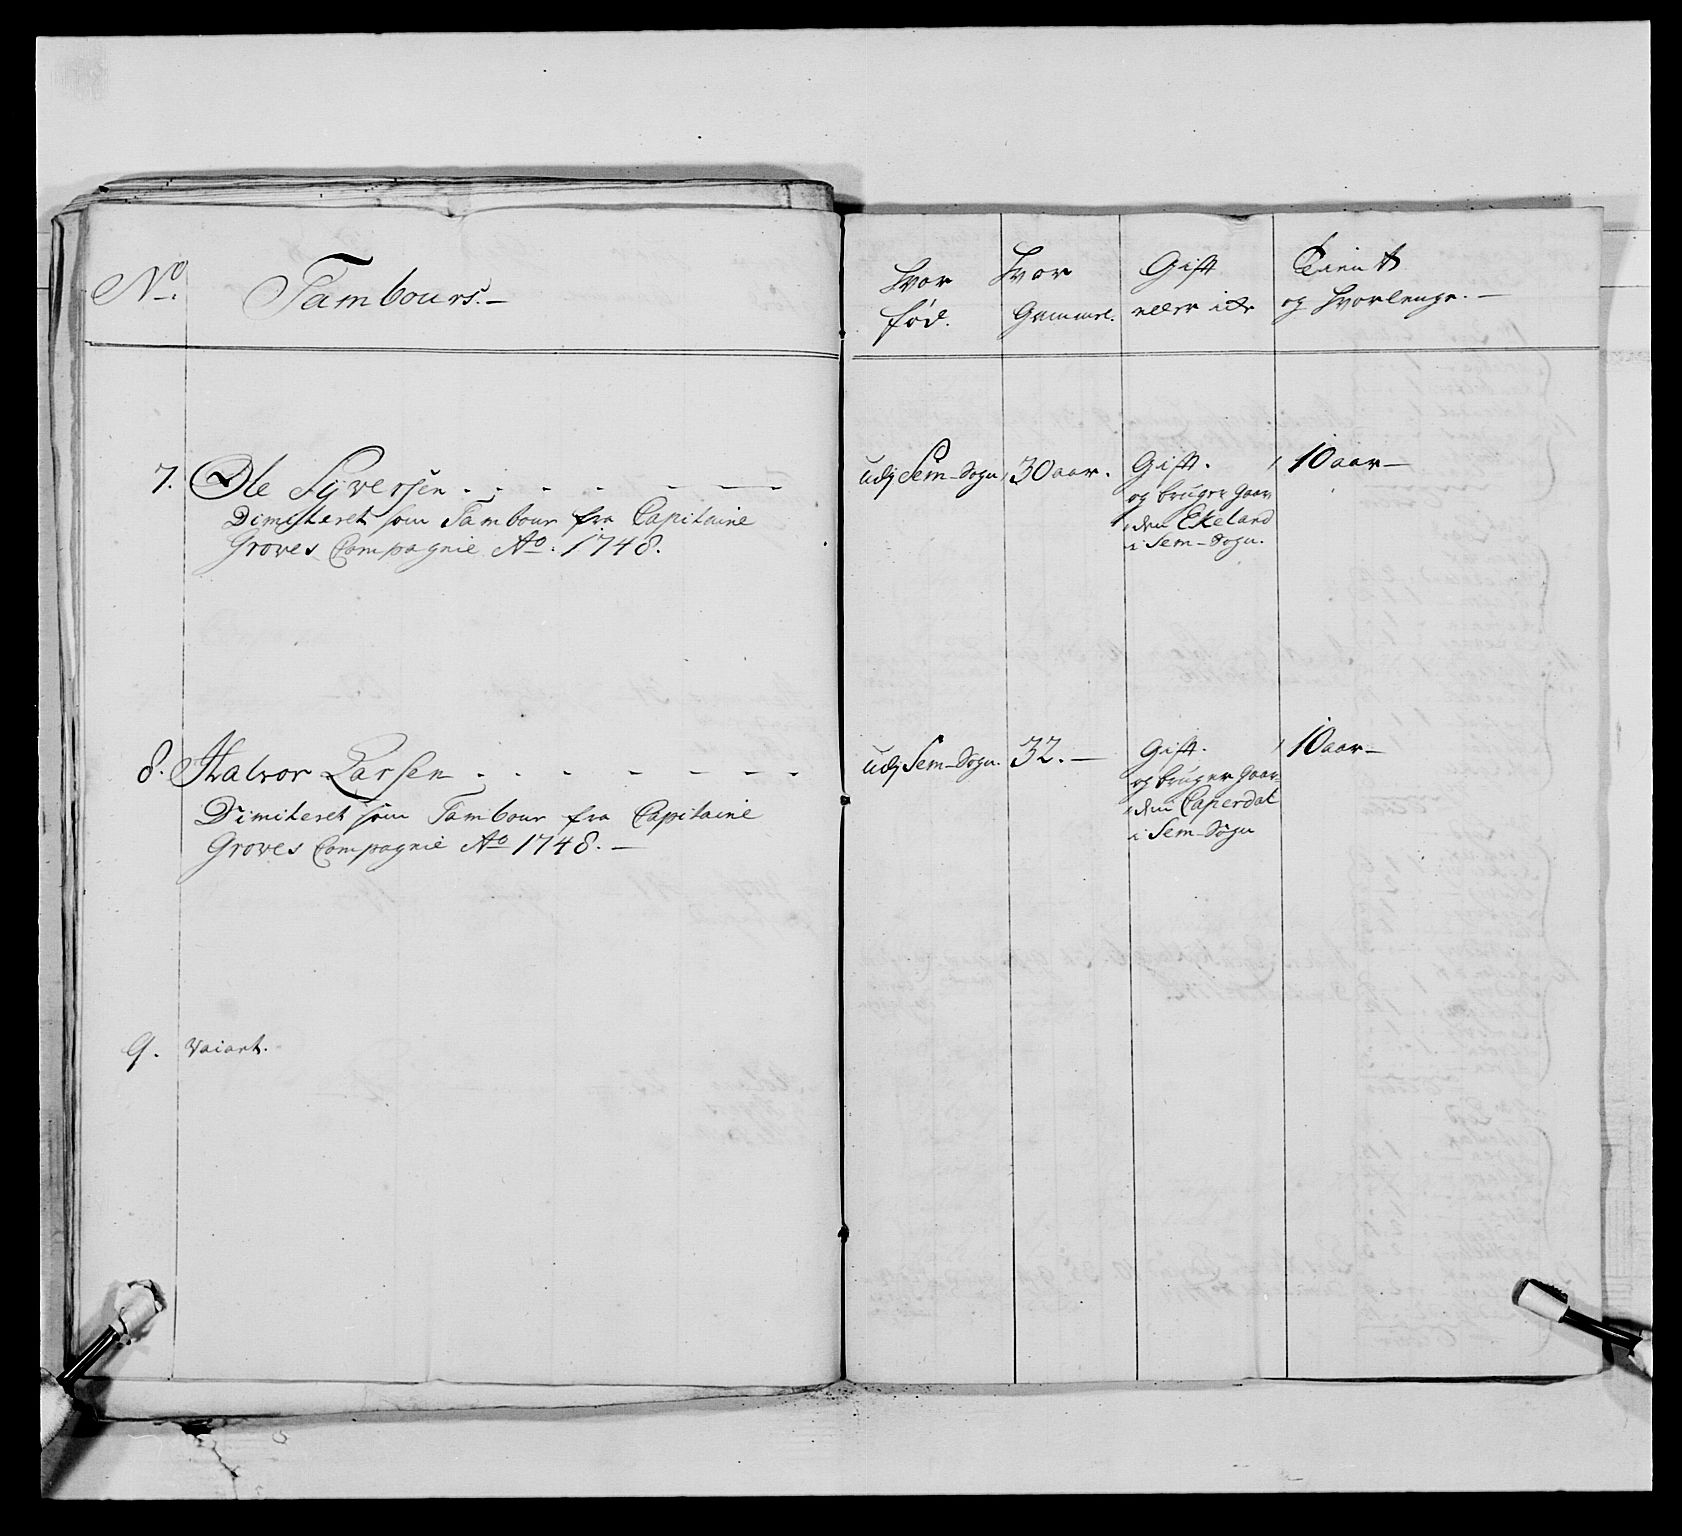 No. Tambours.-
Hvor Hvor Gift Tient
fød. Gammel. eller icke og hvorlenge.-
7. Ole Syversen - - - - - -
Dimiteret som Tambour fra Capitaine
Groves Compagnie Ao. 1748.
udj Sem-Sogn, 30 aar. Gift. 10 aar-
og bruger Gaar-
den Ekeland
i Sem-Sogn.
8. Halvor Larsen - - - - - - -
Dimiteret som Tambour fra Capitaine
Groves Compagnie Ao 1748.-
udj Sem-Sogn. 32.- Gift. 10 aar-
og bruger Gaar-
den Caperdal
i Sem-Sogn
9. Vacant.